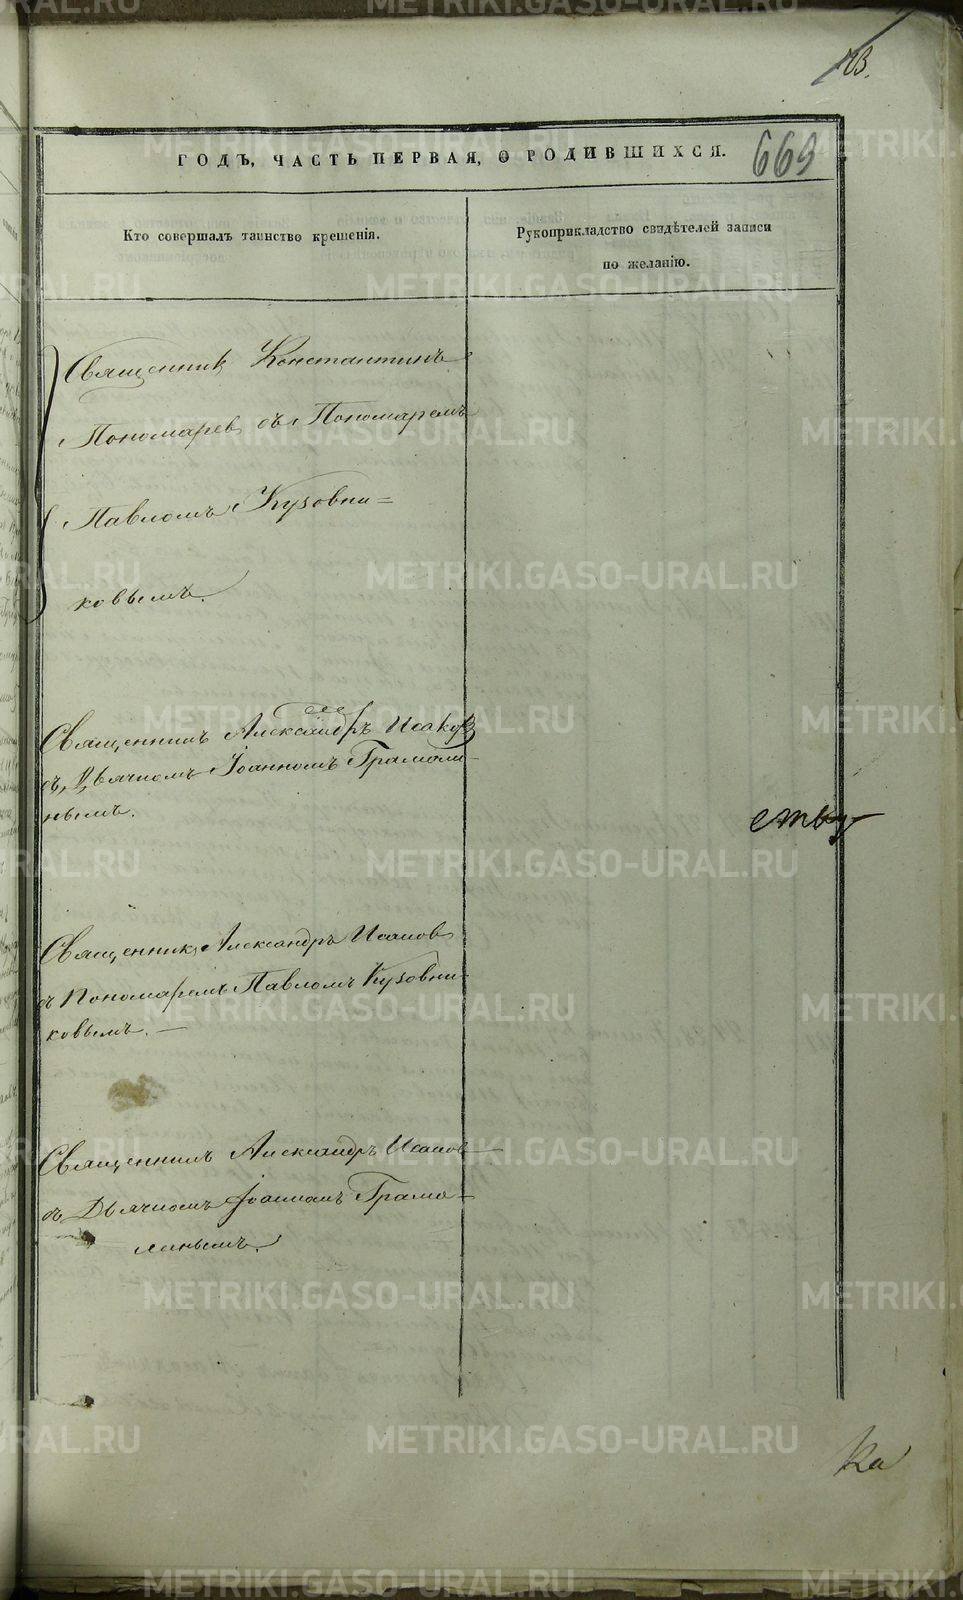 83.
ГОДЪ, ЧАСТЬ ПЕРВАЯ, О РОДИВШИХСЯ.
669
Кто совершалъ таинство крещенія.
Рукоприкладство свидѣтелей записи
по желанію.
Священник Константинъ
Пономарев съ Пономаремъ
Павломъ Кузовни=
ковымъ.
Священникъ Александръ Исаков
съ Дьячкомъ Іоанномъ Грамоли-
нымъ.
ству
Священник Александръ Исаков
съ Пономаремъ Павломъ Кузовни-
ковымъ. —
Священникъ Александръ Исаков
съ Дьячкомъ Іоанномъ Грамо-
линымъ.
Ка
METRIKI.GASO-URAL.RU